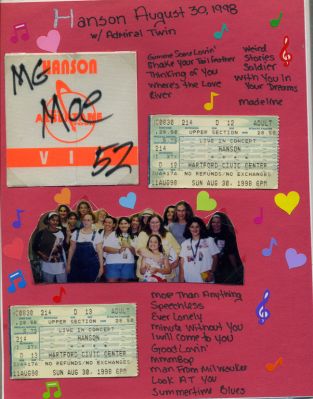 Hanson August 30, 1998
w/ Admiral Twin
Gimme Some Lovin'
Shake Your Tailfeather
Thinking of You
Where's the Love
River
Weird
Stories
Soldier
With You In
Your Dreams
Madeline
MG
HANSON
Moe
52
VI
C0830 214 D 12 ADULT
28.50 UPPER SECTION 28.50
LIVE IN CONCERT
214 HANSON
D 12 HARTFORD CIVIC CENTER
NO REFUNDS/NO EXCHANGES
11AUG98 SUN AUG 30, 1998 6PM
C0830 214 D 13 ADULT
28.50 UPPER SECTION 28.50
LIVE IN CONCERT
214 HANSON
D 13 HARTFORD CIVIC CENTER
NO REFUNDS/NO EXCHANGES
11AUG98 SUN AUG 30, 1998 6PM
More Than Anything
Speechless
Ever Lonely
Minute Without You
I Will Come to You
Good Lovin'
MMMBop
Man From Milwaukee
Look At You
Summertime Blues